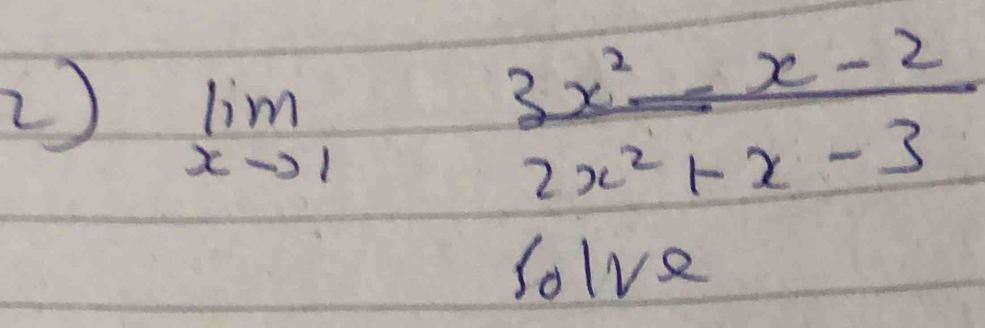 2) lim 3x² - x - 2
x→1 2x² + x - 3
Solve